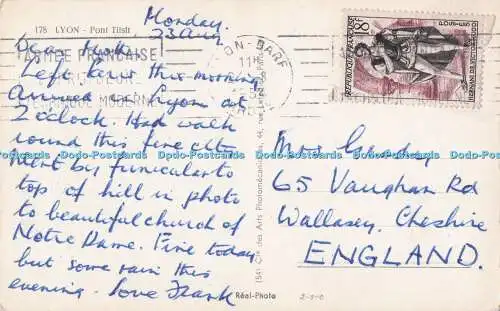 178 LYON - Pont Tilsit
Monday.
23 Aug
Left here this morning
Arrived at Lyon at
2 o'clock. Had walk
round this fine city
Went by funicular to
top of hill in photo
to beautiful church of
Notre Dame. Fine today
but some rain this
evening. Love Frank
ARMÉE FRANÇAISE
MODERNE
LYON-GARE
11H
RÉPUBLIQUE FRANÇAISE
8F
POSTES
COMÉDIE
Mrs Gendy
65 Vaughan Rd
Wallasey. Cheshire
ENGLAND.
Cie des Arts Photomécaniques, 44, rue
Réel-Photo
2-3-0
Dodo-Postcards Dodo-Postcards Dodo-Postcards Dodo-Postcards Dodo-Postcards